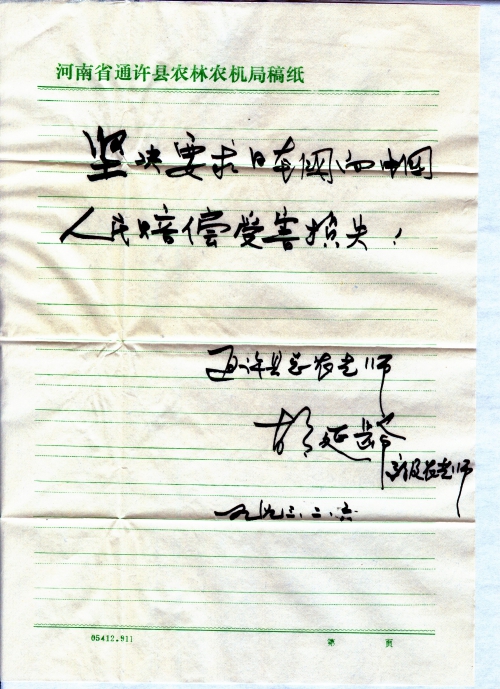 河南省通许县农林农机局稿纸
坚决要求日本国向中国
人民赔偿受害损失！
通许县总农艺师
胡延龄
高级农艺师
一九九三.二.六
05412.911
第 页